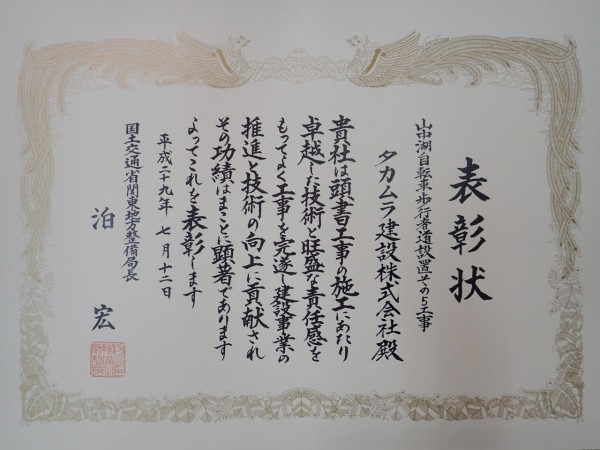 表彰状
山中湖自転車歩行者道設置その5工事
タカムラ建設株式会社殿
貴社は頭書工事の施工にあたり
卓越した技術と旺盛な責任感を
もってよく工事を完遂し建設事業の
推進と技術の向上に貢献され
その功績はまことに顕著であります
よってこれを表彰します
平成二十九年 七月十二日
国土交通省関東地方整備局長
泊 宏